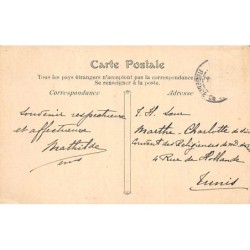 Carte Postale
Tous les pays étrangers n'acceptent pas la correspondance
Se renseigner à la poste.
Correspondance
Adresse
Souvenir respectueux
et affectueux
Mathilde
T. H. Sœur
Marthe-Charlotte de
Couvent des Religieuses de N.D. de
4 Rue de Hollande
Tunis